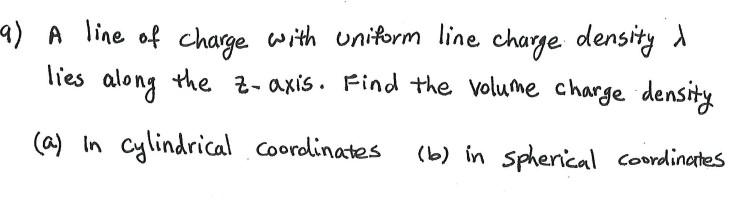 9) A line of charge with uniform line charge density λ
lies along the z-axis. Find the volume charge density
(a) in cylindrical coordinates (b) in spherical coordinates